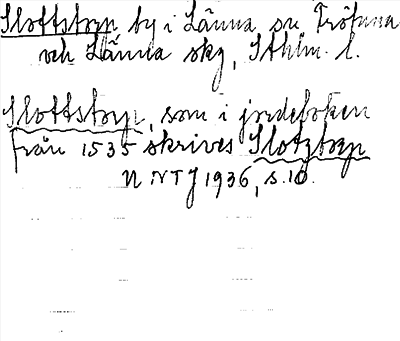 Slottstorp, by i Länna sn Frötuna
och Länna skg, Sthlm. l.
Slottstorp, som i jordeboken
från 1535 skrives Slotztorp
NTJ 1936, s. 10.